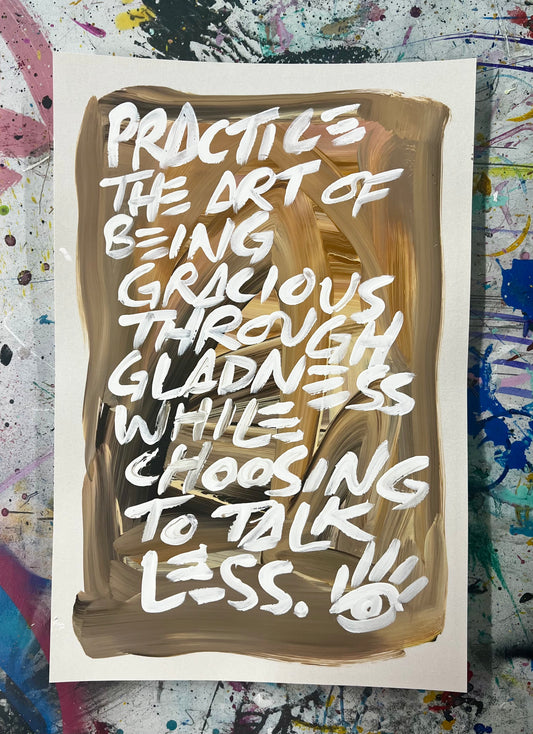 PRACTICE
THE ART OF
BEING
GRACIOUS
THROUGH
GLADNESS
WHILE
CHOOSING
TO TALK
LESS.